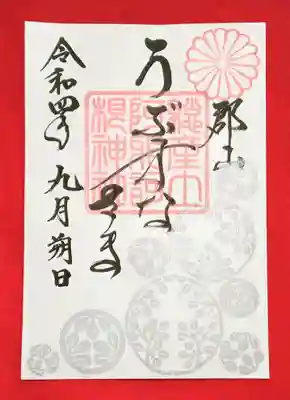 郡山
うぶすな
さま
令和四年九月朔日
産土
根神社